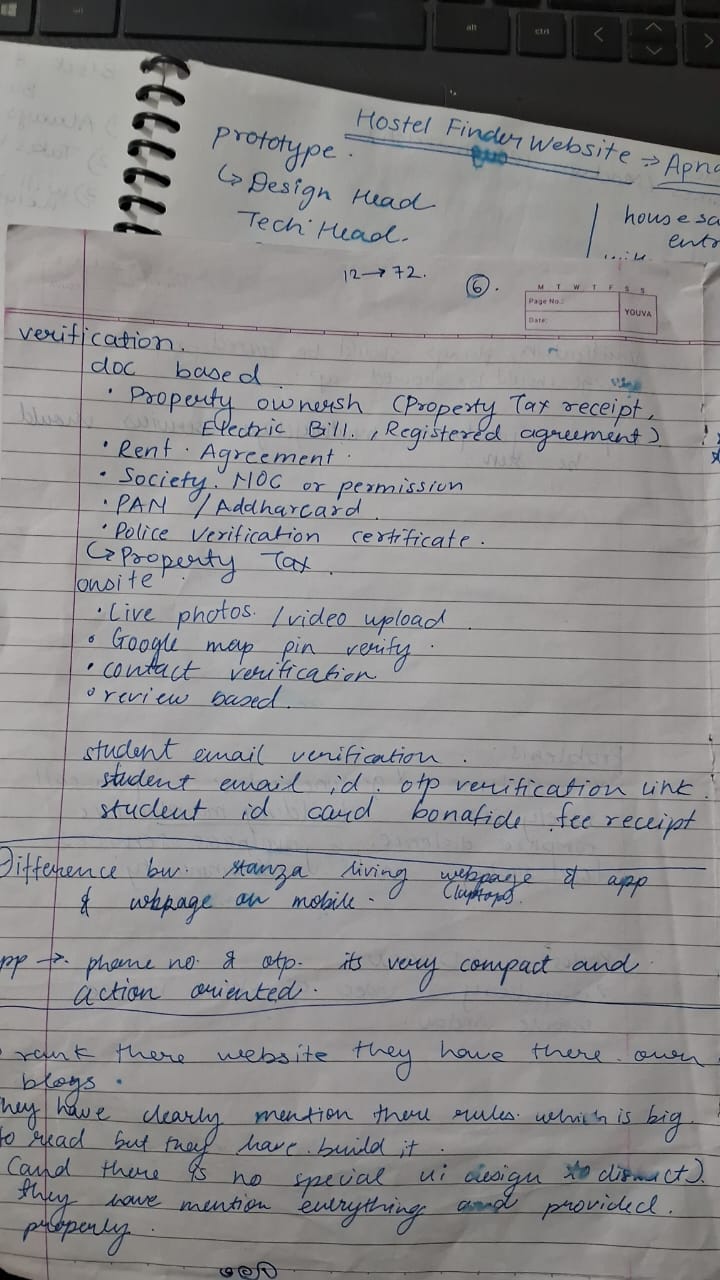 alt
ctrl
Hostel Finder Website → Apna
prototype.
↳ Design Head
Tech Head.
house
entr
12 → 72.
6.
M T W T F S S
Page No.:
Date:
YOUVA
verification.
doc based
• Property ownersh (Property Tax receipt,
Electric Bill., Registered agreement)
• Rent. Agreement.
• Society. NOC or permission
• PAN / Addharcard
• Police verification certificate.
↳ Property Tax
onsite
• Live photos. / video upload
• Google map pin verify.
• contact verification
• review based.
student email verification.
student email id. otp verification link.
student id card bonafide. fee receipt
Difference bw. stanza living webpage & app
(laptops).
& webpage on mobile.
pp →. phone no. & otp. its very compact and
action oriented.
rank there website they have there own
blogs.
hey have clearly mention there rules. which is big.
to read but they have build it.
(and there is no special ui design to distract).
they have mention everything and provided.
properly.